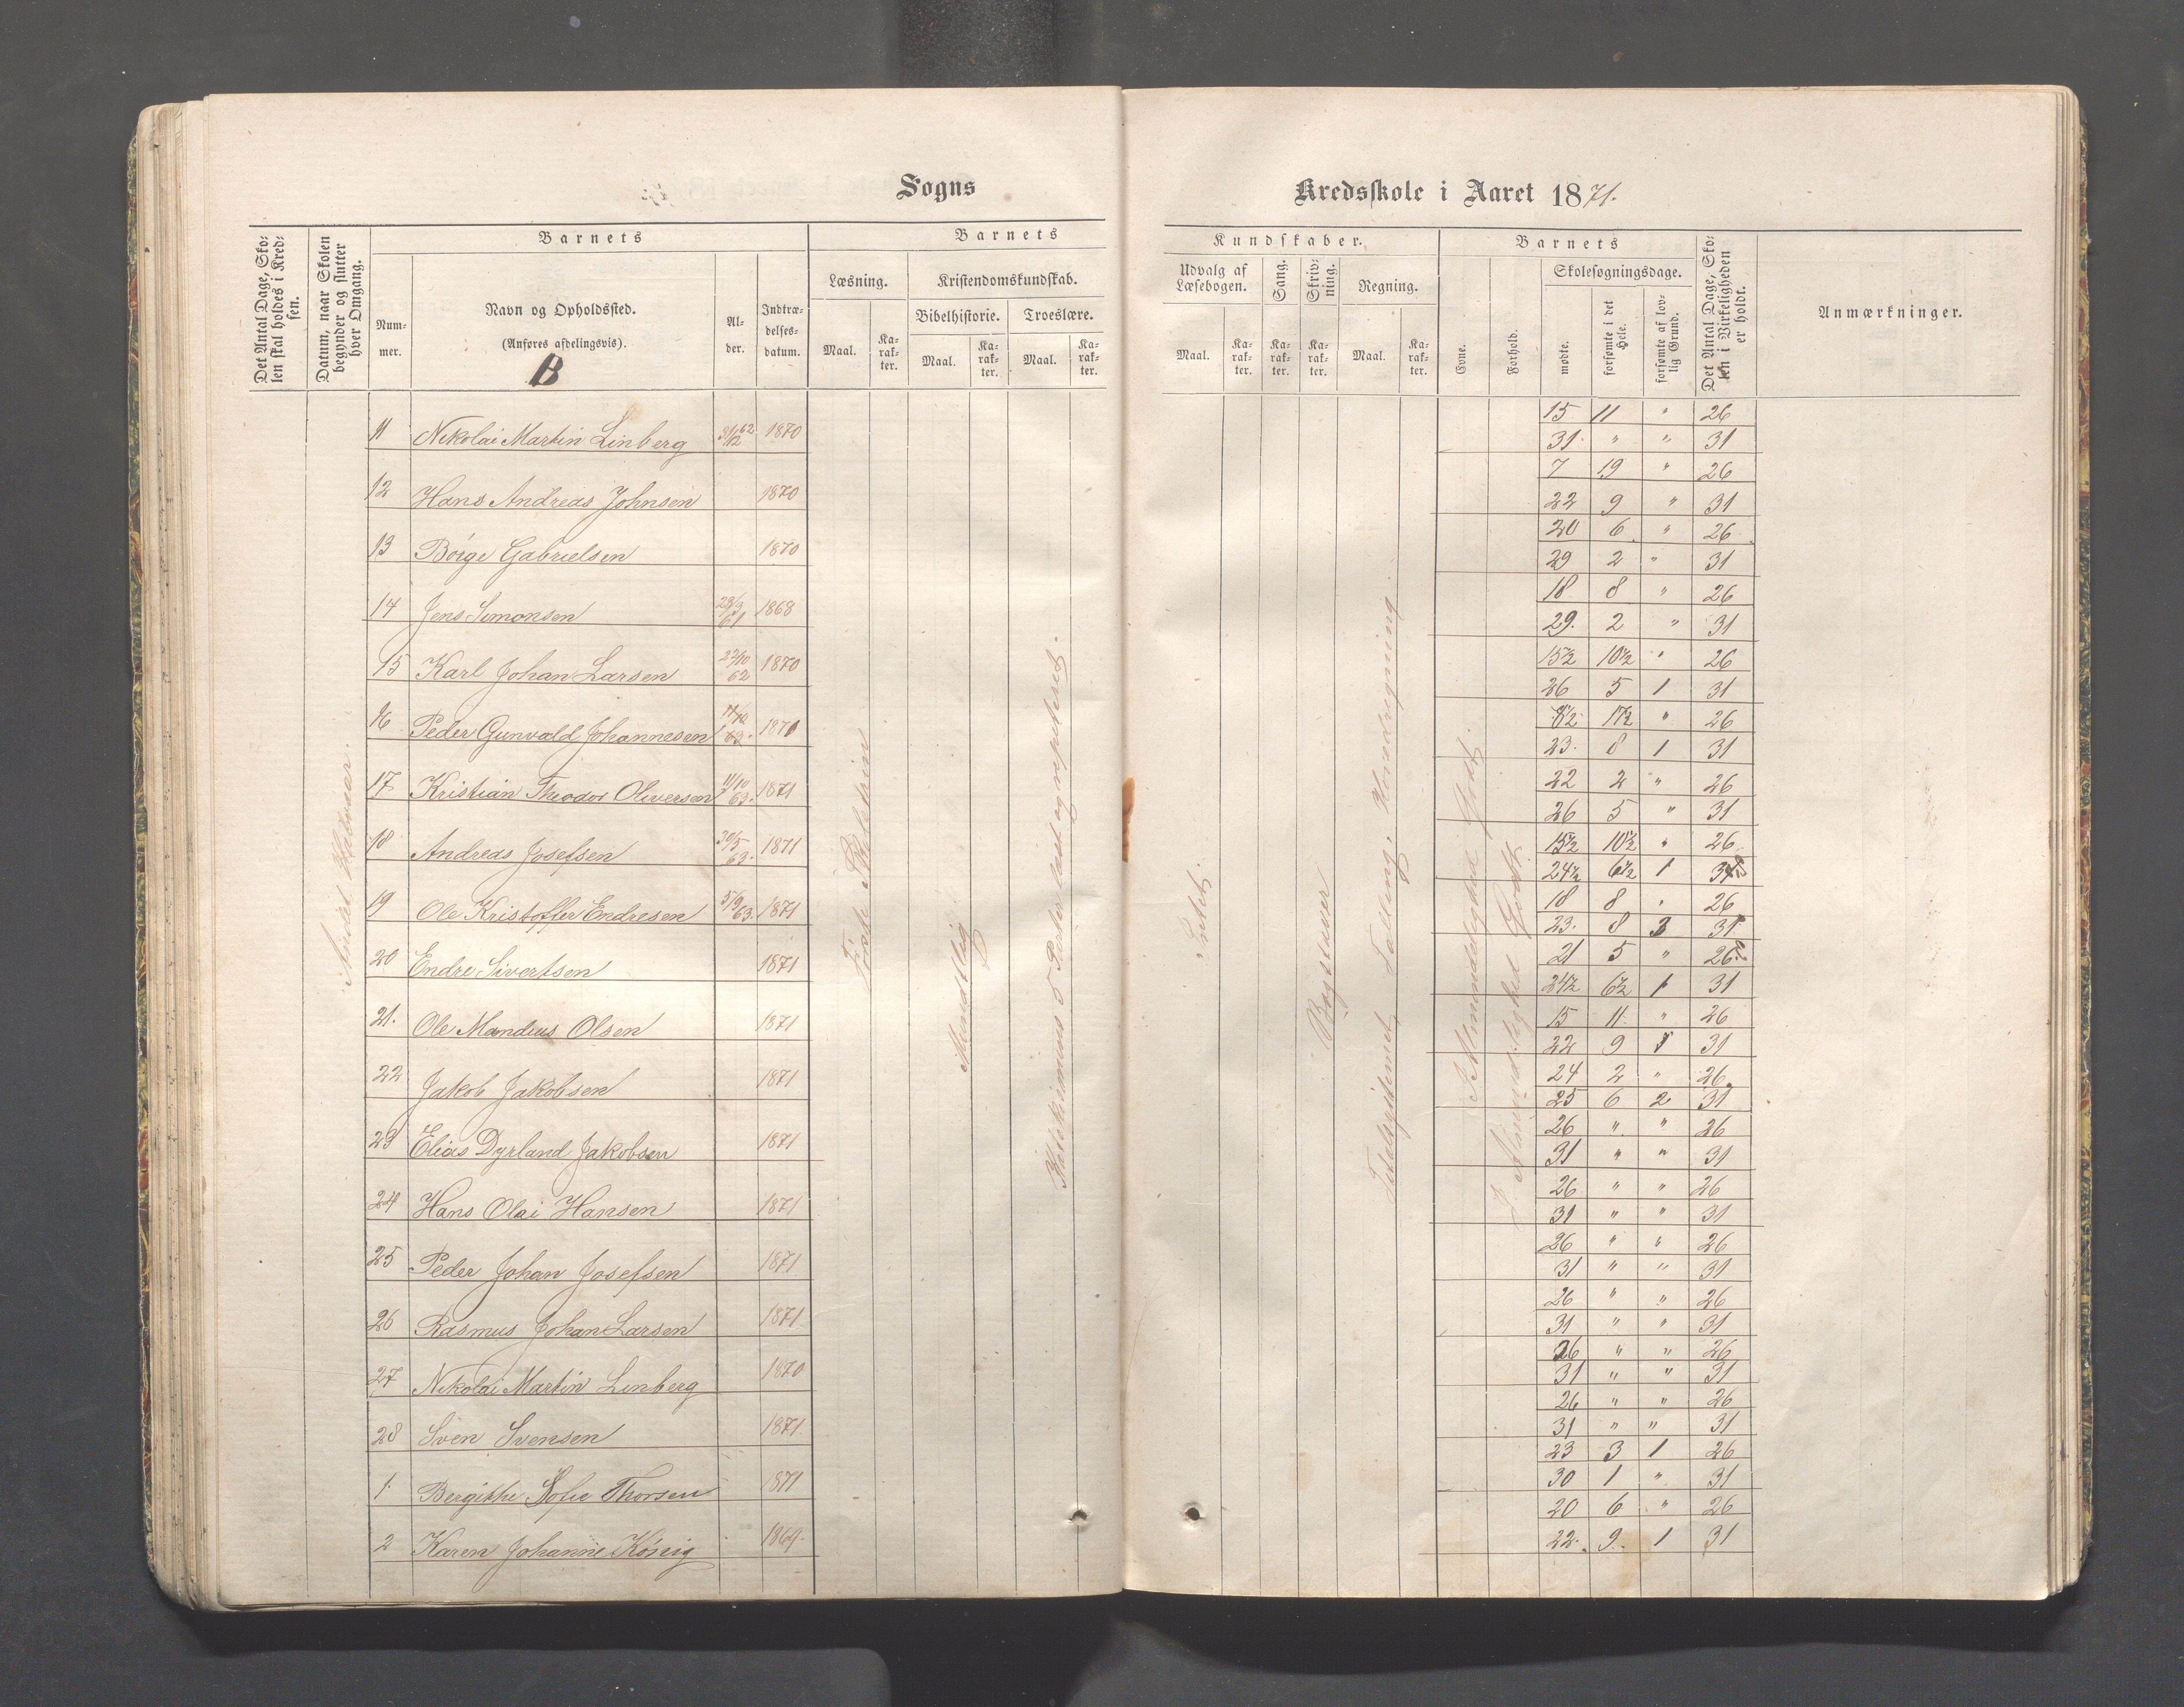 Sogns
Kredsskole i Aaret 1871.
Det Antal Dage, Sko-
len skal holdes i Kred-
sen.
Datum, naar Skolen
begynder og slutter
hver Omgang.
Barnets
Num-
mer.
Navn og Opholdssted.
(Anføres afdelingsvis).
B
Al-
der.
Indtræ-
delses-
datum.
Barnets
Læsning.
Kristendomskundskab.
Bibelhistorie.
Troeslære.
Maal.
Ka-
rak-
ter.
Maal.
Ka-
rak-
ter.
Maal.
Ka-
rak-
ter.
Kundskaber.
Udvalg af
Læsebogen.
Sang.
Skriv-
ning.
Regning.
Maal.
Ka-
rak-
ter.
Ka-
rak-
ter.
Ka-
rak-
ter.
Maal.
Ka-
rak-
ter.
Barnets
Evne.
Forhold.
Skolesøgningsdage.
mødte.
forsømte i det
Hele.
forsømte af lov-
lig Grund.
Det Antal Dage, Sko-
len i Virkeligheden
er holdt.
Anmærkninger.
Andet Halvaar.
11 Nikolai Martin Linberg 31/12 62 1870
12 Hans Andreas Johnsen 1870
13 Børge Gabrielsen 1870
14 Jens Simonsen 61 1868
15 Karl Johan Larsen 62 1870
16 Peder Gunvald Johannesen 63. 1871
17 Kristian Theodor Oliversen 11/10 63. 1871
18 Andreas Josefsen 30/5 63. 1871
19 Ole Kristoffer Endresen 5/9 63. 1871
20 Endre Sivertsen 1871
21. Ole Mandius Olsen 1871
22 Jakob Jakobsen 1871
23 Elias Dyrland Jakobsen 1871
24 Hans Olai Hansen 1871
25 Peder Johan Josefsen 1871
26 Rasmus Johan Larsen 1871
27 Nikolai Martin Linberg 1870
28 Sven Svensen 1871
1. Bergithe Sofie Thorsen 1871
2 Karen Johanne König 1869.
Mundtlig
Katekismus 5 Parter læst og repeteret.
Intet.
Bogstaver
Tælling, Hovedregning
I Almindelighed Godt.
I Almindelighed Godt.
15 11 " 26
31. " " 31
7 19 " 26
22 9 " 31
20 6 " 26
29 2 " 31
18 8 " 26
29. 2 " 31
15½ 10½ " 26
26 5 1 31
8½ 17½ " 26
23. 8 1 31
22 2 " 26
26 5 " 31
15½ 10½ " 26
24½ 6½ 1 31
18 8 " 26
23. 8 3 31
21 5 " 26
24½ 6½ 1 31
15 11 " 26
22 9 1 31
24 2 " 26
25 6 2 31
26 " " 26
31 " " 31
26 " " 26
31 " " 31
26 " " 26
31 " " 31
26 " " 26
31 " " 31
26 " " 26
31 " " 31
26 " " 26
31 " " 31
23 3 1 26
30 1 " 31
20 6 " 26
22. 9. 1 31